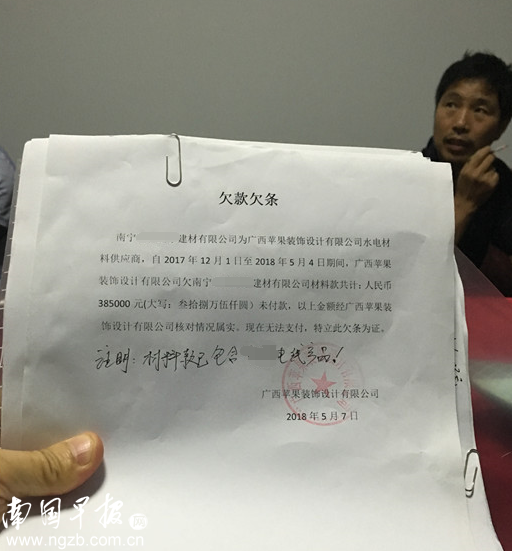 欠款欠条
南宁 建材有限公司为广西苹果装饰设计有限公司水电材
料供应商，自 2017 年 12 月 1 日至 2018 年 5 月 4 日期间，广西苹果
装饰设计有限公司欠南宁 建材有限公司材料款共计：人民币
385000 元(大写：叁拾捌万伍仟圆）未付款，以上金额经广西苹果装
饰设计有限公司核对情况属实。现在无法支付，特立此欠条为证。
注明：材料款已包含 电线产品！
广西苹果装饰设计有限公司
2018 年 5 月 7 日
南国早报网
www.ngzb.com.cn